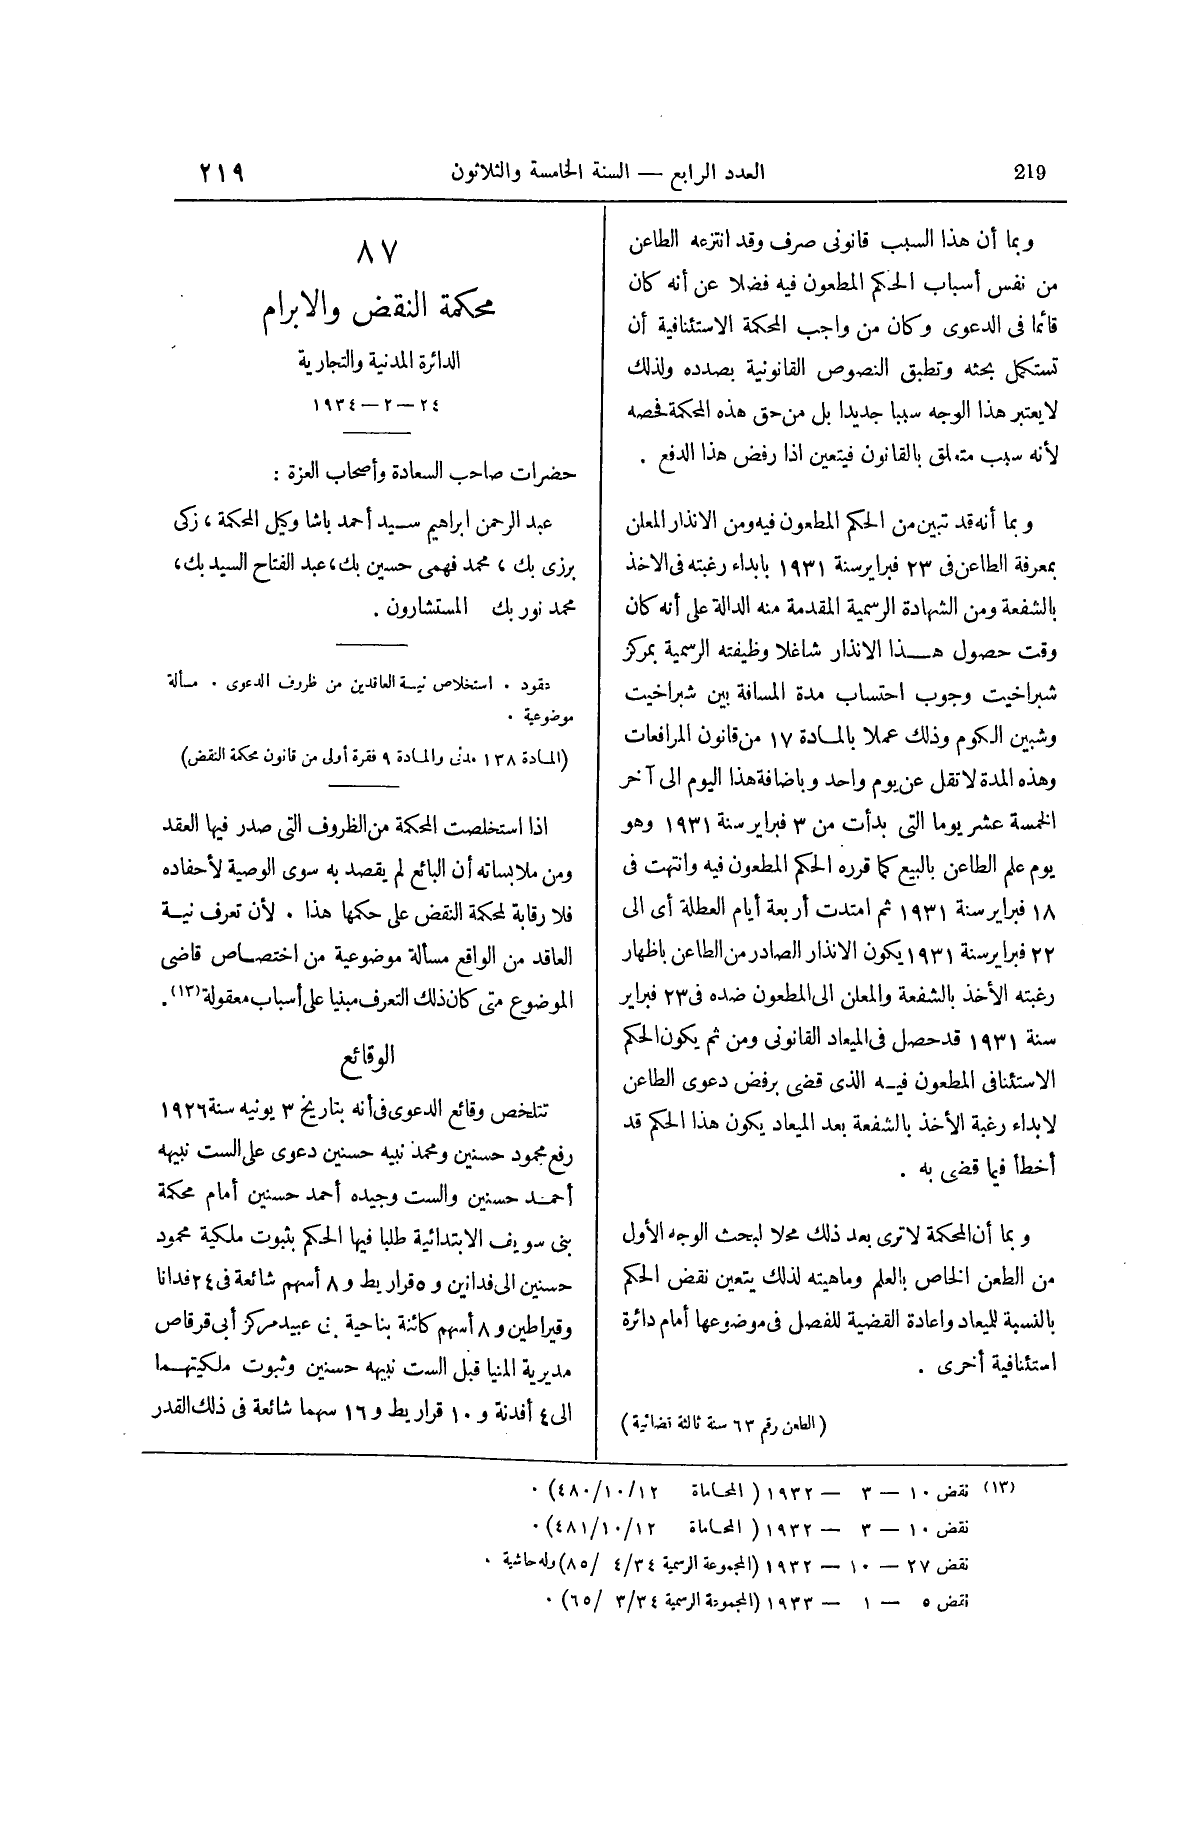 219
العدد الرابع — السنة الخامسة والثلاثون
٢١٩
وبما أن هذا السبب قانونى صرف وقد انتزعه الطاعن
من نفس أسباب الحكم المطعون فيه فضلا عن أنه كان
قائما فى الدعوى وكان من واجب المحكمة الاستئنافية أن
تستكمل بحثه وتطبق النصوص القانونية بصدده ولذلك
لا يعتبر هذا الوجه سببا جديدا بل من حق هذه المحكمة فحصه
لأنه سبب متعلق بالقانون فيتعين اذا رفض هذا الدفع .
وبما أنه قد تبين من الحكم المطعون فيه ومن الانذار المعلن
بمعرفة الطاعن فى ٢٣ فبراير سنة ١٩٣١ بابداء رغبته فى الاخذ
بالشفعة ومن الشهادة الرسمية المقدمة منه الدالة على أنه كان
وقت حصول هذا الانذار شاغلا وظيفته الرسمية بمركز
شبراخيت وجوب احتساب مدة المسافة بين شبراخيت
وشبين الكوم وذلك عملا بالمادة ١٧ من قانون المرافعات
وهذه المدة لا تقل عن يوم واحد وباضافة هذا اليوم الى آخر
الخمسة عشر يوما التى بدأت من ٣ فبراير سنة ١٩٣١ وهو
يوم علم الطاعن بالبيع كما قرره الحكم المطعون فيه وانتهت فى
١٨ فبراير سنة ١٩٣١ ثم امتدت أربعة أيام العطلة أى الى
٢٢ فبراير سنة ١٩٣١ يكون الانذار الصادر من الطاعن باظهار
رغبته الأخذ بالشفعة والمعلن الى المطعون ضده فى ٢٣ فبراير
سنة ١٩٣١ قد حصل فى الميعاد القانونى ومن ثم يكون الحكم
الاستئنافى المطعون فيه الذى قضى برفض دعوى الطاعن
لابداء رغبة الأخذ بالشفعة بعد الميعاد يكون هذا الحكم قد
أخطأ فيما قضى به .
وبما أن المحكمة لا ترى بعد ذلك محلا لبحث الوجه الأول
من الطعن الخاص بالعلم وماهيته لذلك يتعين نقض الحكم
بالنسبة للميعاد واعادة القضية للفصل فى موضوعها أمام دائرة
استئنافية أخرى .
( الطعن رقم ٦٣ سنة ثالثة قضائية )
٨٧
محكمة النقض والابرام
الدائرة المدنية والتجارية
٢٤ — ٢ — ١٩٣٤
حضرات صاحب السعادة وأصحاب العزة :
عبد الرحمن ابراهيم سيد أحمد باشا وكيل المحكمة ، زكى
برزى بك ، محمد فهمى حسين بك ، عبد الفتاح السيد بك ،
محمد نور بك المستشارون .
عقود . استخلاص نية العاقدين من ظروف الدعوى . مسألة
موضوعية .
(المادة ١٣٨ مدنى والمادة ٩ فقرة أولى من قانون محكمة النقض)
اذا استخلصت المحكمة من الظروف التى صدر فيها العقد
ومن ملابساته أن البائع لم يقصد به سوى الوصية لأحفاده
فلا رقابة لمحكمة النقض على حكمها هذا . لأن تعرف نية
العاقد من الواقع مسألة موضوعية من اختصاص قاضى
الموضوع متى كان ذلك التعرف مبنيا على أسباب معقولة (١٣) .
الوقائع
تتلخص وقائع الدعوى فى أنه بتاريخ ٣ يونيه سنة ١٩٢٦
رفع محمود حسنين ومحمد نبيه حسنين دعوى على الست نبيهه
أحمد حسنين والست وجيده أحمد حسنين أمام محكمة
بنى سويف الابتدائية طلبا فيها الحكم بثبوت ملكية محمود
حسنين الى فدانين و ٥ قراريط و ٨ أسهم شائعة فى ٢٤ فدانا
وقيراطين و ٨ أسهم كائنة بناحية بنى عبيد مركز أبى قرقاص
مديرية المنيا قبل الست نبيهه حسنين وثبوت ملكيتهما
الى ٤ أفدنة و ١٠ قراريط و ١٦ سهما شائعة فى ذلك القدر
(١٣) نقض ١٠ — ٣ — ١٩٣٢ ( المحاماة ٤٨٠/١٠/١٢) .
نقض ١٠ — ٣ — ١٩٣٢ ( المحاماة ٤٨١/١٠/١٢) .
نقض ٢٧ — ١٠ — ١٩٣٢ (المجموعة الرسمية ٣٤/ ٤/ ٨٥) وله حاشية .
نقض ٥ — ١ — ١٩٣٣ (المجموعة الرسمية ٣٤/ ٣/ ٦٥) .